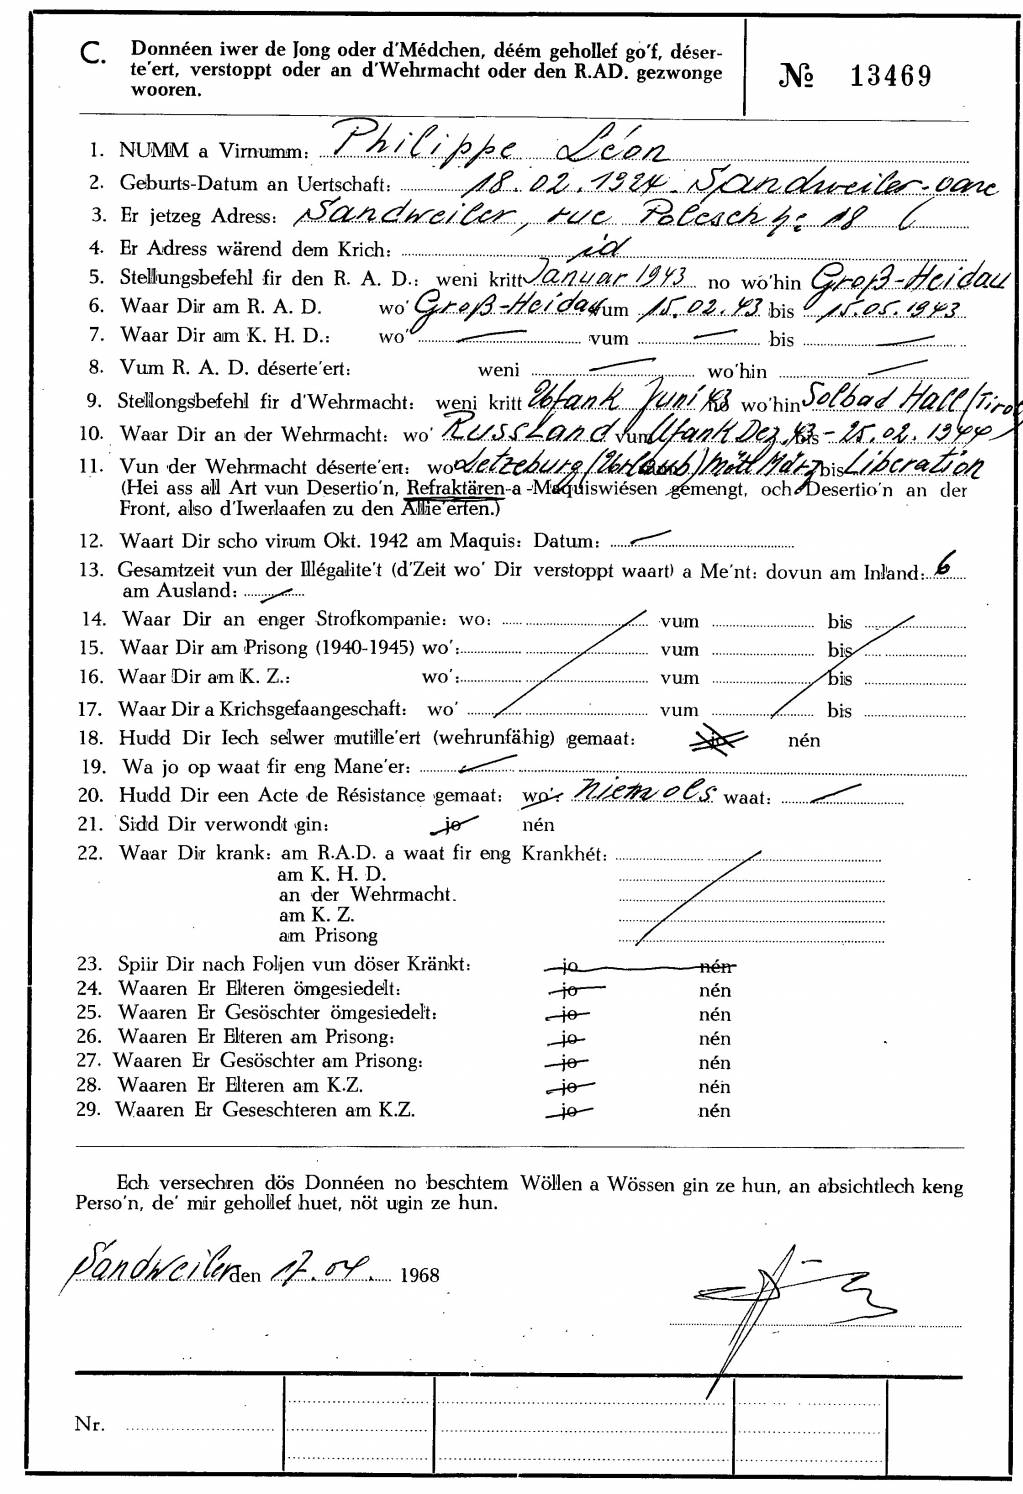 C. Donnéen iwer de Jong oder d'Médchen, déém gehollef go'f, déser-
te'ert, verstoppt oder an d'Wehrmacht oder den R.AD. gezwonge
wooren.
№ 13469
1. NUMM a Virnumm: Philippe Léon
2. Geburts-Datum an Uertschaft: 18.02.1924. Sandweiler-
3. Er jetzeg Adress: Sandweiler, rue 18
4. Er Adress wärend dem Krich: id
5. Stellungsbefehl fir den R. A. D.: weni kritt Januar 1943 no wo'hin Groß-Heidau
6. Waar Dir am R. A. D. wo' Groß-Heidau vum 15.02.43 bis 15.05.1943
7. Waar Dir am K. H. D.: wo' — vum — bis —
8. Vum R. A. D. déserte'ert: weni — wo'hin —
9. Stellongsbefehl fir d'Wehrmacht: weni kritt Ufank Juni 43 no wo'hin Solbad Hall/Tirol
10. Waar Dir an der Wehrmacht: wo' Russland vum Ufank Dez. 43 bis - 25.02.1944
11. Vun der Wehrmacht déserte'ert: wo Letzeburg (Urlaub) Mött März bis Liberation
(Hei ass all Art vun Desertio'n, Refraktären-a -Maquiswiésen gemengt, och Desertio'n an der
Front, also d'Iwerlaafen zu den Allie'erten.)
12. Waart Dir scho virum Okt. 1942 am Maquis: Datum: —
13. Gesamtzeit vun der Illégalite't (d'Zeit wo' Dir verstoppt waart) a Me'nt: dovun am Inland: 6
am Ausland: —
14. Waar Dir an enger Strofkompanie: wo: vum bis
15. Waar Dir am Prisong (1940-1945) wo': vum bis
16. Waar Dir am K. Z.: wo': vum bis
17. Waar Dir a Krichsgefaangeschaft: wo' vum bis
18. Hudd Dir Iech selwer mutille'ert (wehrunfähig) gemaat: jo nén
19. Wa jo op waat fir eng Mane'er: —
20. Hudd Dir een Acte de Résistance gemaat: wo': niemols waat: —
21. Sidd Dir verwondt gin: jo nén
22. Waar Dir krank: am R.A.D. a waat fir eng Krankhét:
am K. H. D.
an der Wehrmacht.
am K. Z.
am Prisong
23. Spiir Dir nach Foljen vun döser Kränkt: jo nén
24. Waaren Er Elteren ömgesiedelt: jo nén
25. Waaren Er Gesöschter ömgesiedelt: jo nén
26. Waaren Er Elteren am Prisong: jo nén
27. Waaren Er Gesöschter am Prisong: jo nén
28. Waaren Er Elteren am K.Z. jo nén
29. Waaren Er Geseschteren am K.Z. jo nén
Ech versechren dös Donnéen no beschtem Wöllen a Wössen gin ze hun, an absichtlech keng
Perso'n, de' mir gehollef huet, nöt ugin ze hun.
Sandweiler den 17.04. 1968
Nr.